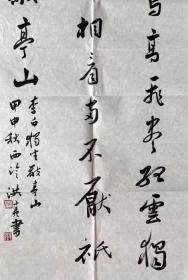 鳥高飛盡孤雲獨
相看兩不厭祇
敬亭山
李白獨坐敬亭山
甲申秋西泠洪亮書